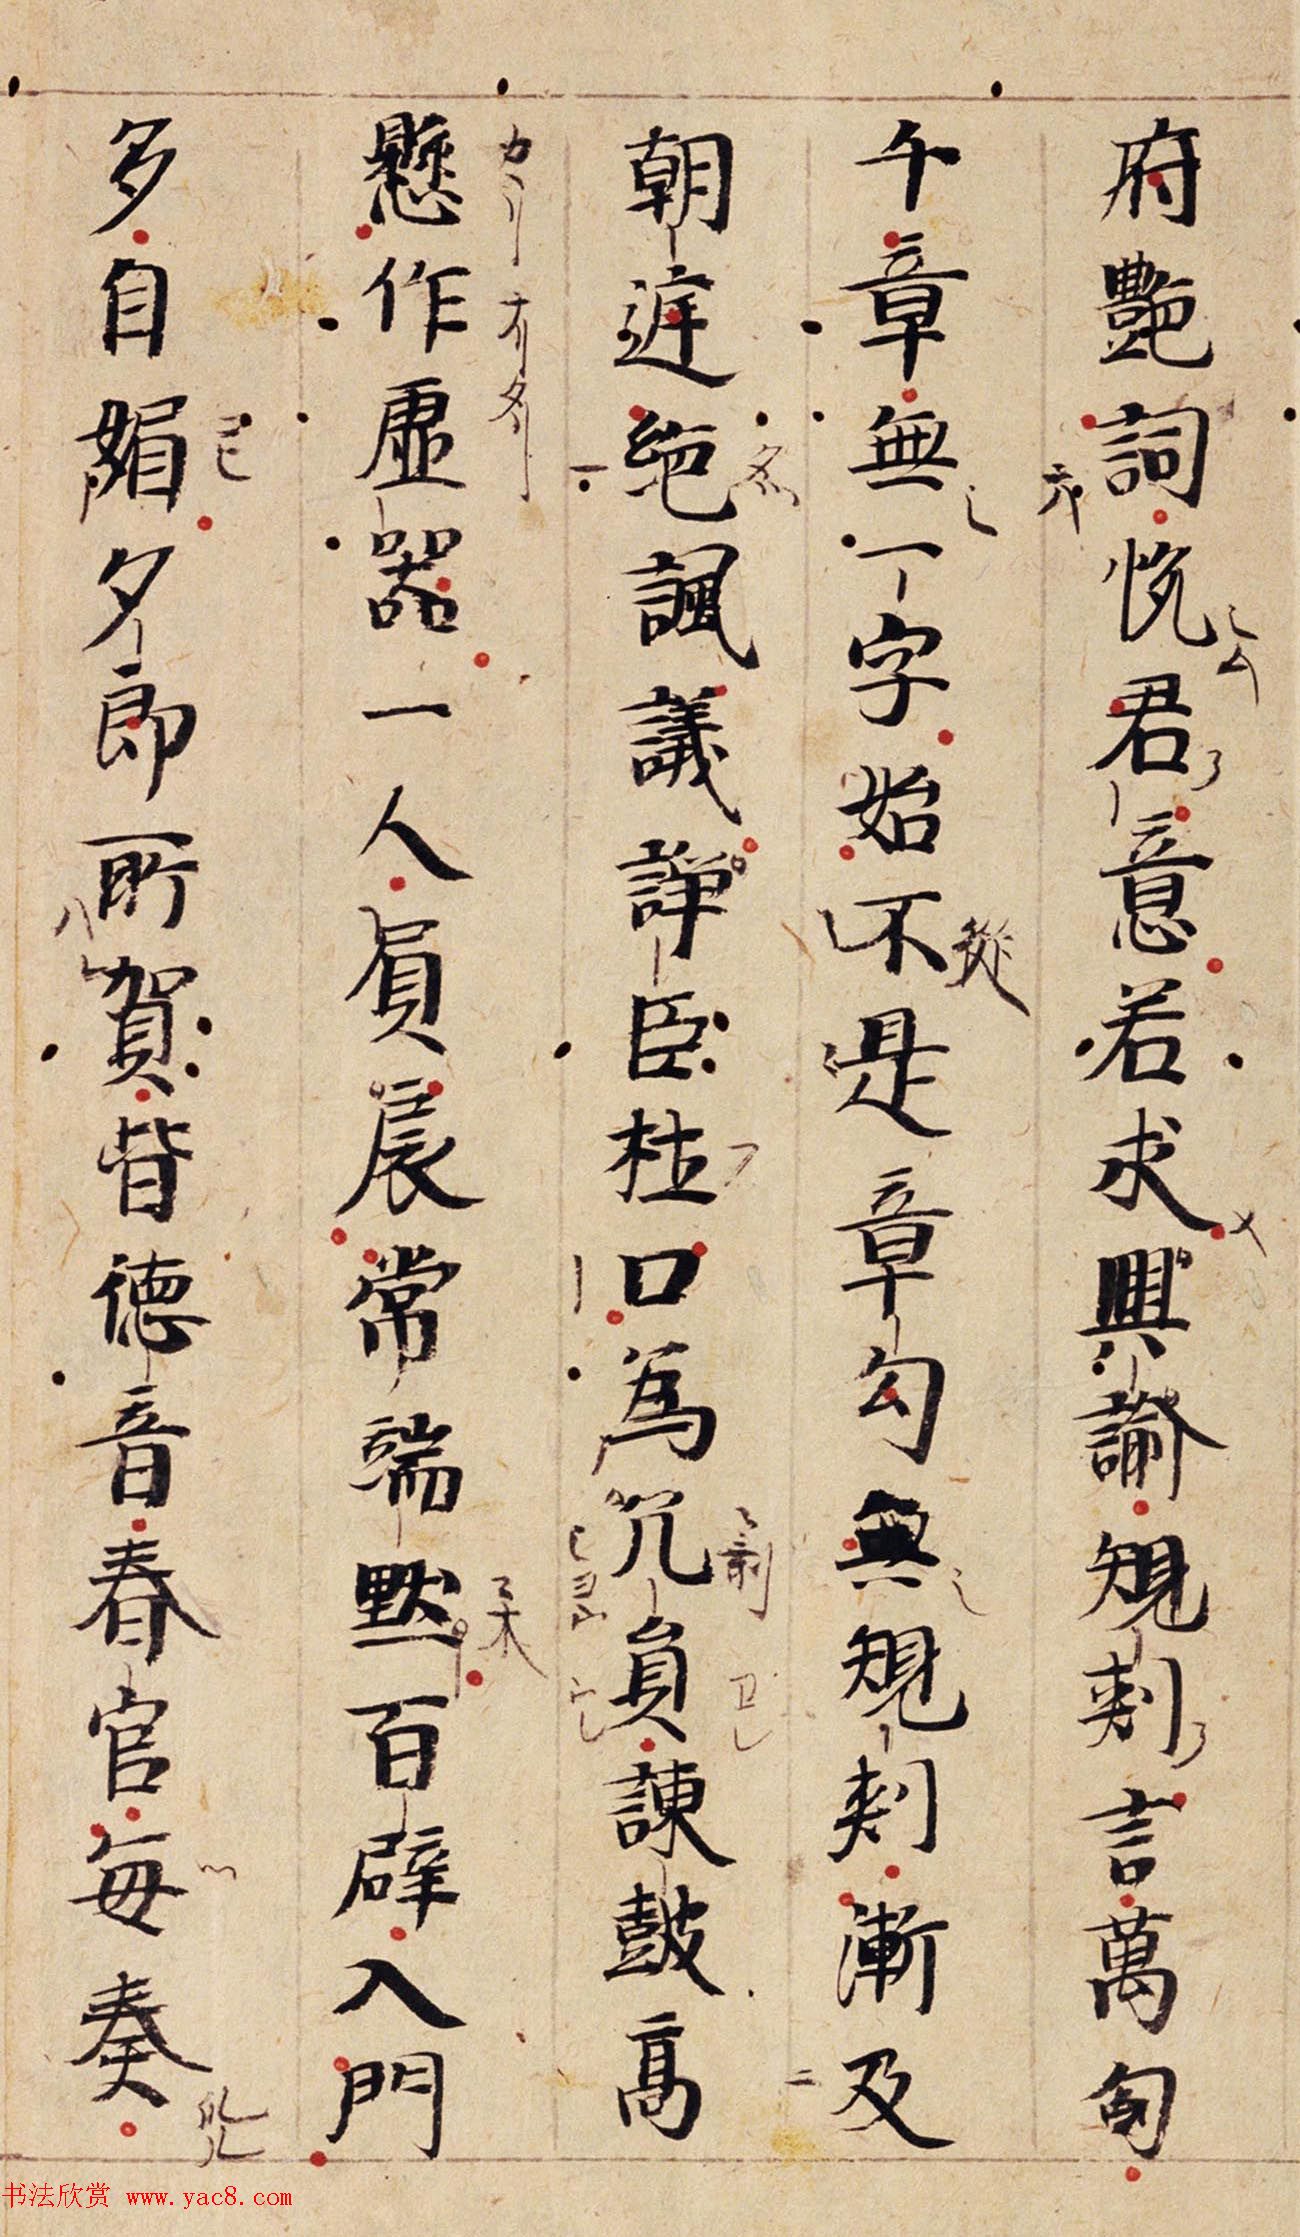 府艷詞恱君意若求興諭規刾言萬句
千章無一字始不是章勾無規刾漸及
朝遅絶諷議諍臣杜口為冗員諌皷髙
懸作虚器一人屓扆常端黙百辟入門
多自媚夕郎所賀皆德音春官每奏
從
书法欣赏 www.yac8.com